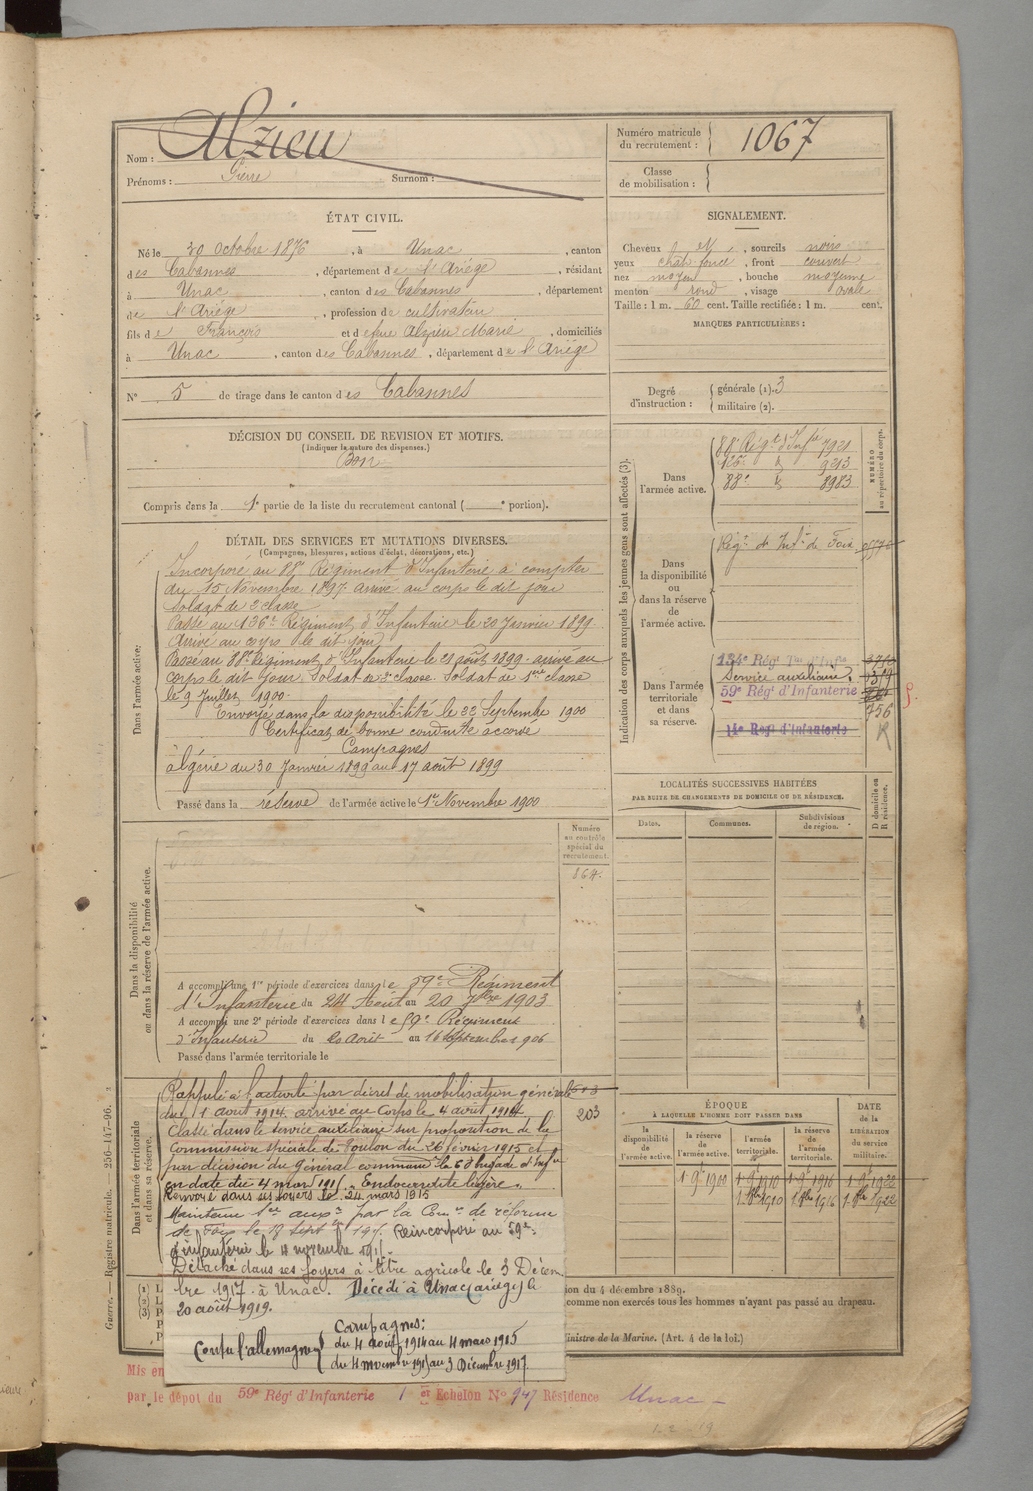 Nom : Alzieu
Prénoms : Pierre Surnom :
Numéro matricule du recrutement : 1067
Classe de mobilisation :
ÉTAT CIVIL.
Né le 30 Octobre 1876, à Unac, canton
des Cabannes, département de l'Ariège, résidant
à Unac, canton des Cabannes, département
de l'Ariège, profession de cultivateur
fils de François et de feue Alzieu Marie, domiciliés
à Unac, canton des Cabannes, département de l'Ariège
N° 5 de tirage dans le canton des Cabannes
SIGNALEMENT.
Cheveux, sourcils noirs
yeux chat. foncé, front couvert
nez moyen, bouche moyenne
menton rond, visage ovale
Taille : 1 m. 60 cent. Taille rectifiée : 1 m. cent.
MARQUES PARTICULIÈRES :
Degré d'instruction : générale (1). 3
militaire (2).
DÉCISION DU CONSEIL DE REVISION ET MOTIFS.
(Indiquer la nature des dispenses.)
Bon
Compris dans la 1e partie de la liste du recrutement cantonal ( e portion).
DÉTAIL DES SERVICES ET MUTATIONS DIVERSES.
(Campagnes, blessures, actions d'éclat, décorations, etc.)
Dans l'armée active:
Incorporé au 88e Régiment d'Infanterie à compter
du 15 Novembre 1897 arrivé au corps le dit jour
Soldat de 2e classe
Passé au 126e Régiment d'Infanterie le 20 Janvier 1899
Arrivé au corps le dit jour
Passé au 88e Régiment d'Infanterie le 21 août 1899 - arrivé au
corps le dit jour. Soldat de 2e classe. Soldat de 1ère classe
le 9 Juillet 1900.
Envoyé dans la disponibilité le 22 Septembre 1900
Certificat de bonne conduite accordé
Campagnes
Algérie du 30 Janvier 1899 au 17 août 1899
Passé dans la réserve de l'armée active le 1er Novembre 1900
Indication des corps auxquels les jeunes gens sont affectés (3).
NUMÉRO au répertoire du corps.
Dans l'armée active.
88e Régt d'Infie 7921
126e d° 9213
88e d° 8983
Dans la disponibilité ou dans la réserve de l'armée active.
Régt de Infie de Foix
Dans l'armée territoriale et dans sa réserve.
134e Régt Tal d'Infie
Service auxiliaire.
59e Régt d'Infanterie
756
14e Régt d'Infanterie R
LOCALITÉS SUCCESSIVES HABITÉES
PAR SUITE DE CHANGEMENTS DE DOMICILE OU DE RÉSIDENCE.
Dates. Communes. Subdivisions de région. D domicile ou R résidence.
Dans la disponibilité ou dans la réserve de l'armée active.
Numéro au contrôle spécial du recrutement.
864.
A accompli une 1re période d'exercices dans le 59e Régiment
d'Infanterie du 24 Août au 20 7bre 1903
A accompli une 2e période d'exercices dans le 59e Régiment
d'Infanterie du 20 août au 16 septembre 1906
Passé dans l'armée territoriale le
Dans l'armée territoriale et dans sa réserve.
203
Rappelé à l'activité par décret de mobilisation générale
du 1 août 1914. arrivé au Corps le 4 août 1914
Classé dans le service auxiliaire sur proposition de la
Commission spéciale de Toulon du 26 février 1915 et
par décision du général command
en date du 4 mars 1915. Endocardite légère.
Renvoyé dans ses foyers le 24 mars 1915
Maintenu par la Comon de réforme
de Foix le 18 Septbre 1915. Réincorporé au 59e
d'infanterie le 4 novembre 1915.
Détaché dans ses foyers à titre agricole le 3 Décem
bre 1917 à Unac. Décédé à Unac (Ariège) le
20 août 1919.
Campagnes:
Contre l'allemagne du 4 août 1914 au 4 mars 1915
du 4 novembre 1915 au 3 Décembre 1917
ÉPOQUE
À LAQUELLE L'HOMME DOIT PASSER DANS
la disponibilité de l'armée active. la réserve de l'armée active. l'armée territoriale. la réserve de l'armée territoriale.
DATE de la LIBÉRATION du service militaire.
1 9e 1900 1 9e 1910 1 9e 1916 1 9e 1922
1. 8bre 1910 1. 8bre 1916 1. 8bre 1922
ion du 4 décembre 1889.
comme non exercés tous les hommes n'ayant pas passé au drapeau.
inistre de la Marine. (Art. 4 de la loi.)
Guerre. — Registre matricule. — 256-147-96.
Mis en
par le dépôt du 59e Régt d'Infanterie 1er Echelon N° 947 Résidence Unac